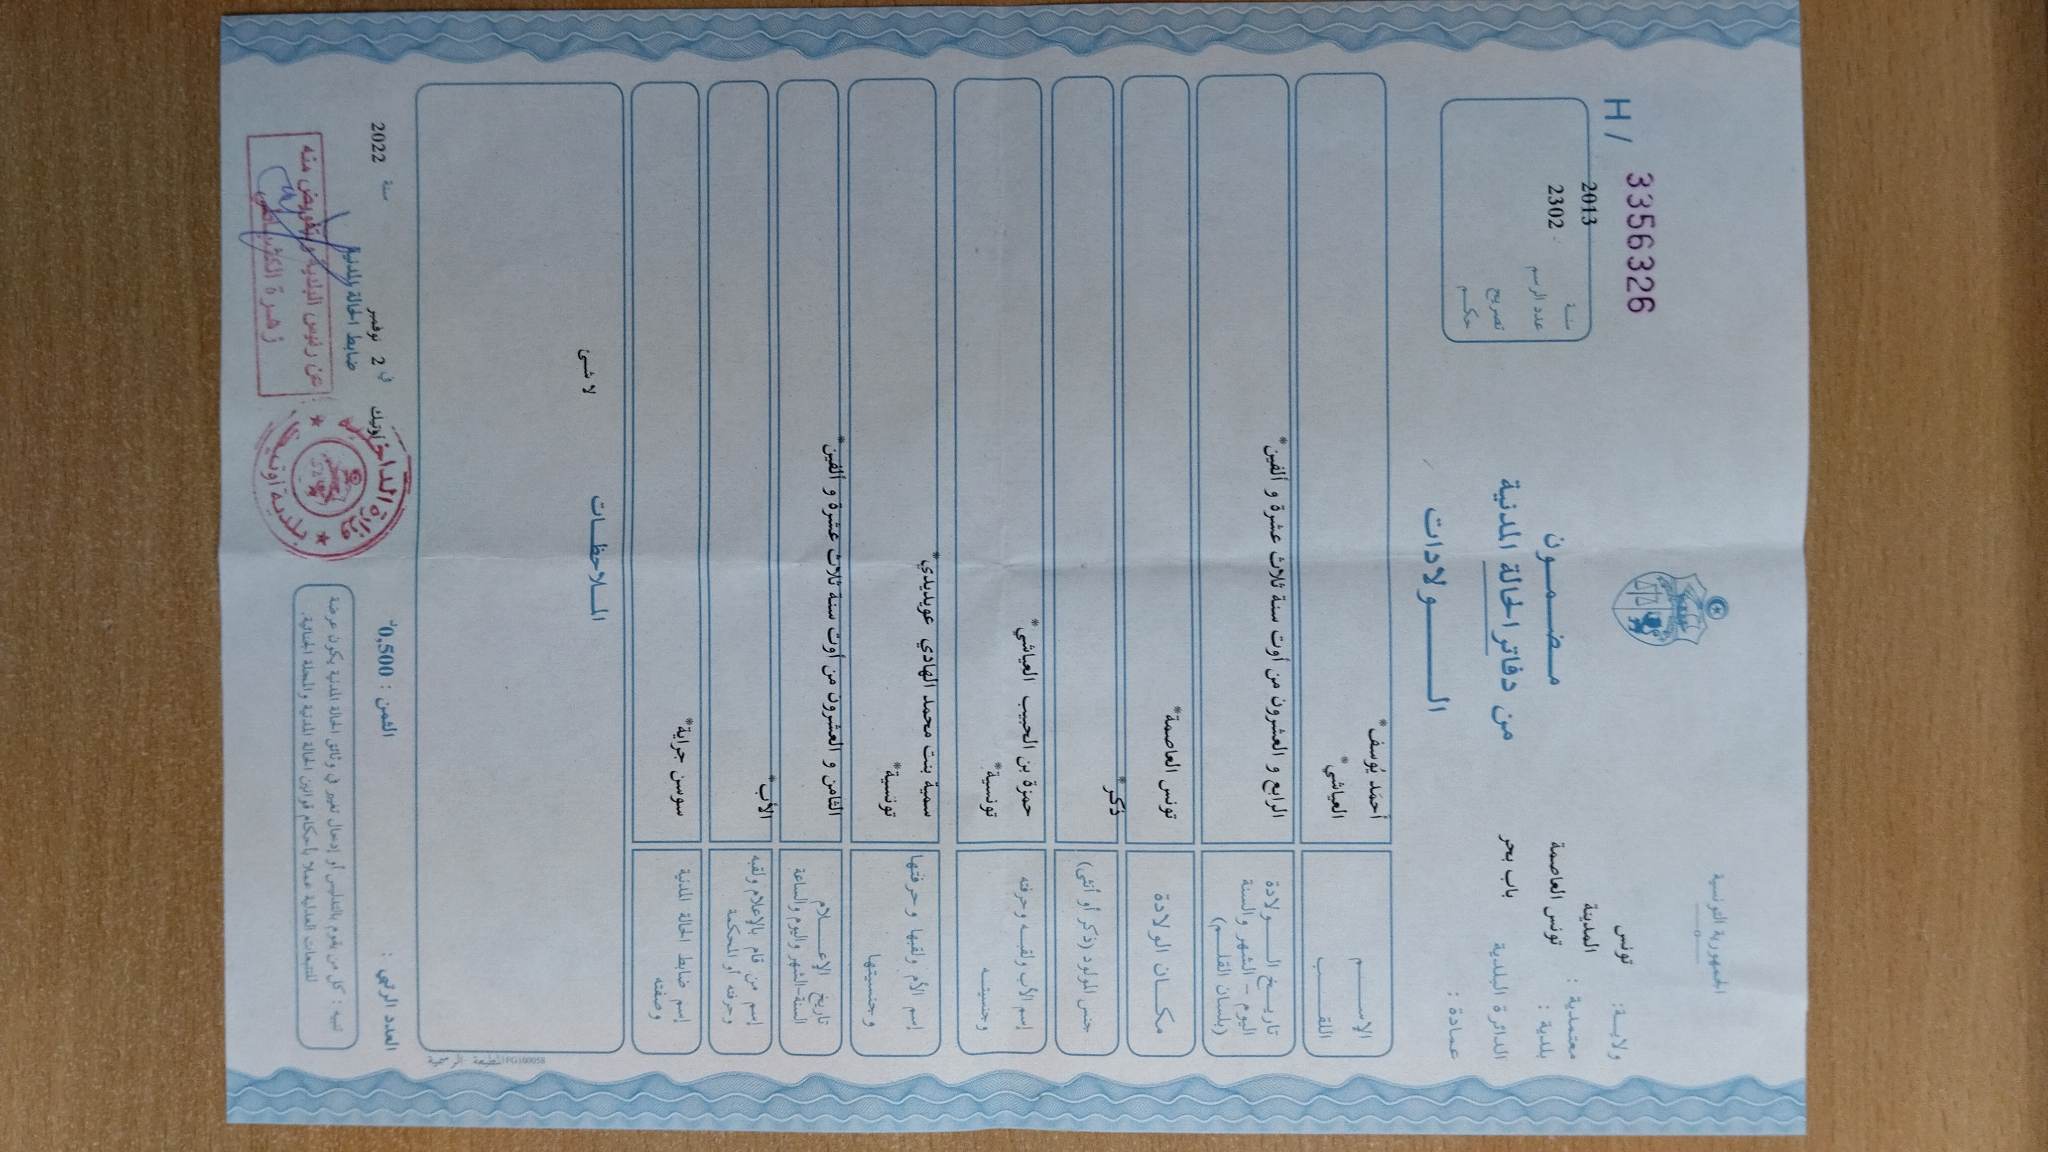 الجمهورية التونسية
ولاية: تونس
معتمدية : المدينة
بلدية : تونس العاصمة
الدائرة البلدية باب بحر
عمادة :
مضمون
من دفاتر الحالة المدنية
الولادات
H/ 33566326
سنة 2013
عدد الرسم 2302
تصريح
حكم
الإسم أحمد يوسف*
اللقب العياشي*
تاريخ الولادة
اليوم - الشهر والسنة
(بلسان القلم)
الرابع و العشرون من أوت سنة ثلاث عشرة و ألفين*
مكان الولادة تونس العاصمة*
جنس المولود (ذكر أو أنثى) ذكر*
إسم الأب ولقبه وحرفته حمزة بن الحبيب العياشي*
وجنسيته تونسية*
إسم الأم ولقبها وحرفتها سمية بنت محمد الهادي عويديدي*
وجنسيتها تونسية*
تاريخ الإعلام
السنة-الشهر واليوم والساعة
الثامن و العشرون من أوت سنة ثلاث عشرة و ألفين*
إسم من قام بالإعلام ولقبه الأب*
وحرفته أو المحكمة
إسم ضابط الحالة المدنية سوسن جراية*
وصفته
الملاحظات
لا شئ
المطبعة الرسمية IFG100058
العدد الرتبي :
الثمن : 0,500د
أوتيك في 2 نوفمبر سنة 2022
ضابط الحالة المدنية
عن رئيس البلدية وبتفويض منه
زهرة
وزارة الداخلية
بلدية أوتيك
تنبيه : كل من يقوم بالتدليس أو إدخال تغيير في وثائق الحالة المدنية يكون عرضة
للتتبعات العدلية عملا بأحكام قوانين الحالة المدنية والمجلة الجنائية.